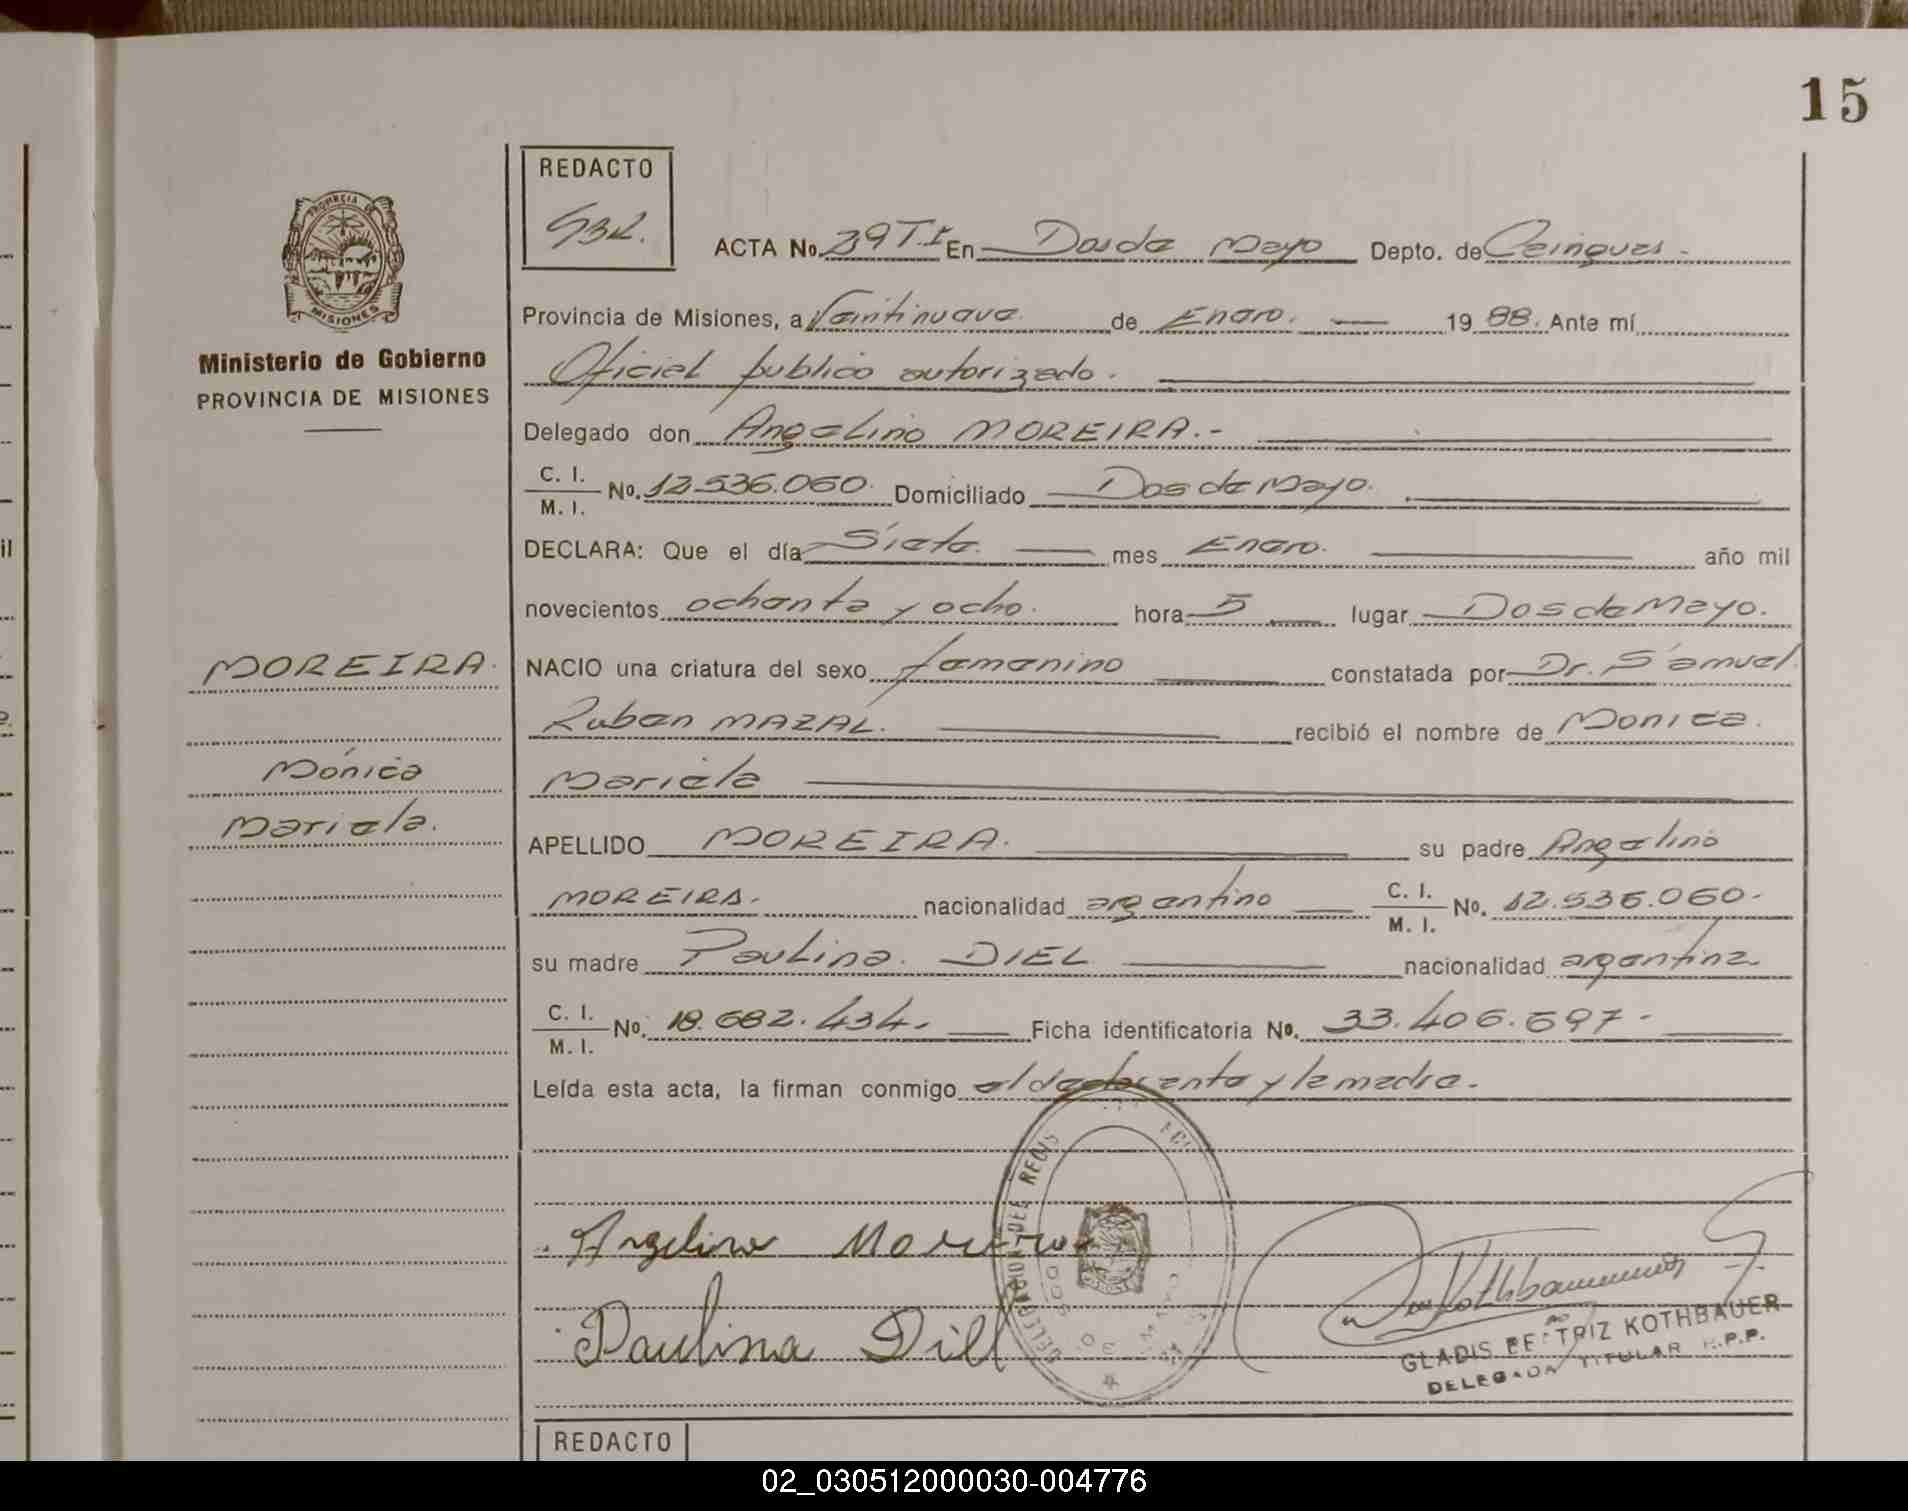 15
REDACTO
PROVINCIA DE
MISIONES
ACTA No. 39 T.I En Dos de Mayo Depto. de Cainguas.-
Provincia de Misiones, a Veintinueve de Enero. 19 88. Ante mí
Oficial publico autorizado.
Ministerio de Gobierno
PROVINCIA DE MISIONES
Delegado don Angelino MOREIRA.-
C. I.
M. I. No. 12.536.060. Domiciliado Dos de Mayo.
DECLARA: Que el día Siete. mes Enero. año mil
novecientos ochenta y ocho. hora 5 lugar Dos de Mayo.
NACIO una criatura del sexo femenino constatada por Dr. Samuel
Ruben MAZAL. recibió el nombre de Monica.
Mariela
APELLIDO MOREIRA. su padre Angelino
MOREIRA. nacionalidad argentino C. I.
M. I. No. 12.536.060.-
su madre Paulina. DIEL nacionalidad argentina
C. I.
M. I. No. 18.682.434.- Ficha identificatoria No. 33.406.697-
Leída esta acta, la firman conmigo el declarante y la madre.
MOREIRA.
Mónica
Mariela.
Angelino Moreira
Paulina Dill
DELEGACION DEL REGIS
DOS DE MAYO
GLADIS BEATRIZ KOTHBAUER
DELEGADA TITULAR R.P.P.
REDACTO
02_030512000030-004776